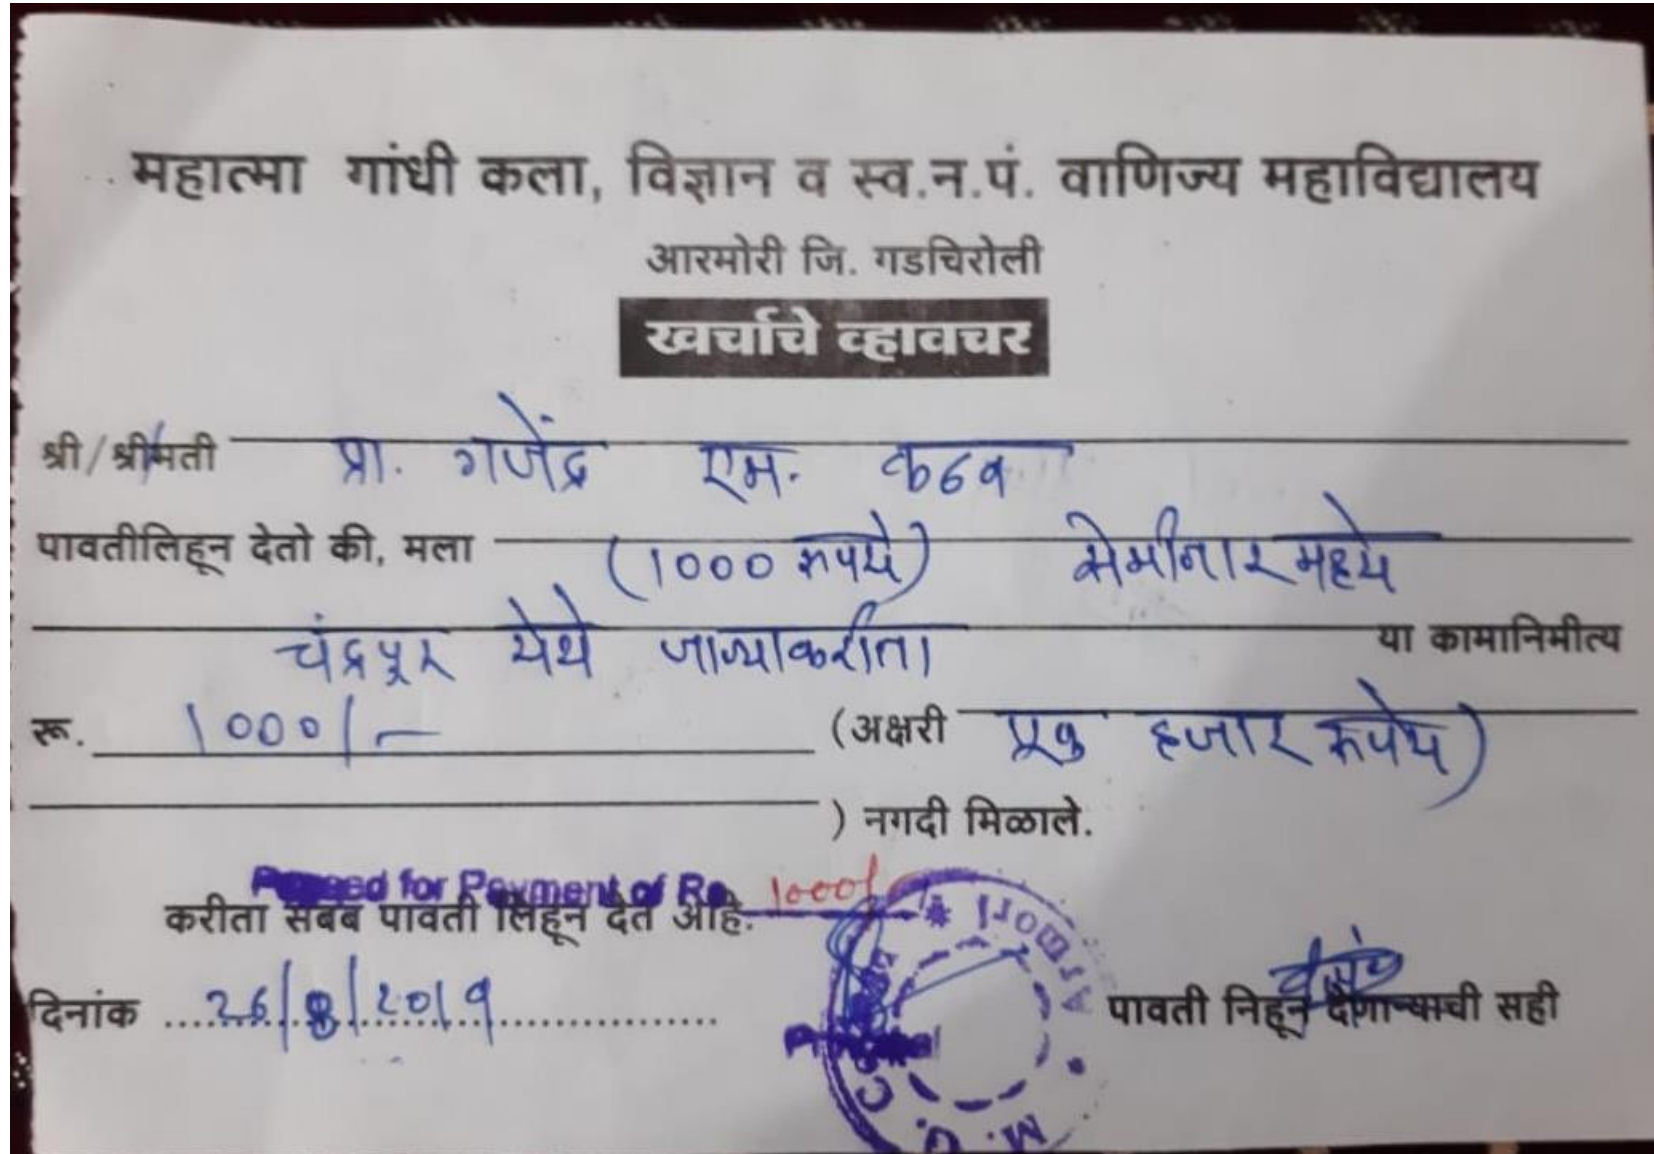 महात्मा गांधी कला, विज्ञान व स्व.न.पं. वाणिज्य महाविद्यालय
आरमोरी जि. गडचिरोली
खर्चाचे व्हावचर
श्री/श्रीमती प्रा. गजेंद्र एम. कढव
पावतीलिहून देतो की, मला (1000 रुपये) सेमीनारमध्ये
चंद्रपूर येथे जाण्याकरीता या कामानिमीत्य
रू. 1000/- (अक्षरी एक हजार रूपये)
) नगदी मिळाले.
for Payment of Rs. 1000/
करीता सबब पावती लिहून देत आहे.
दिनांक 26/8/2019 पावती निहून देणाऱ्याची सही
Principal
M. G. C. ARMORI